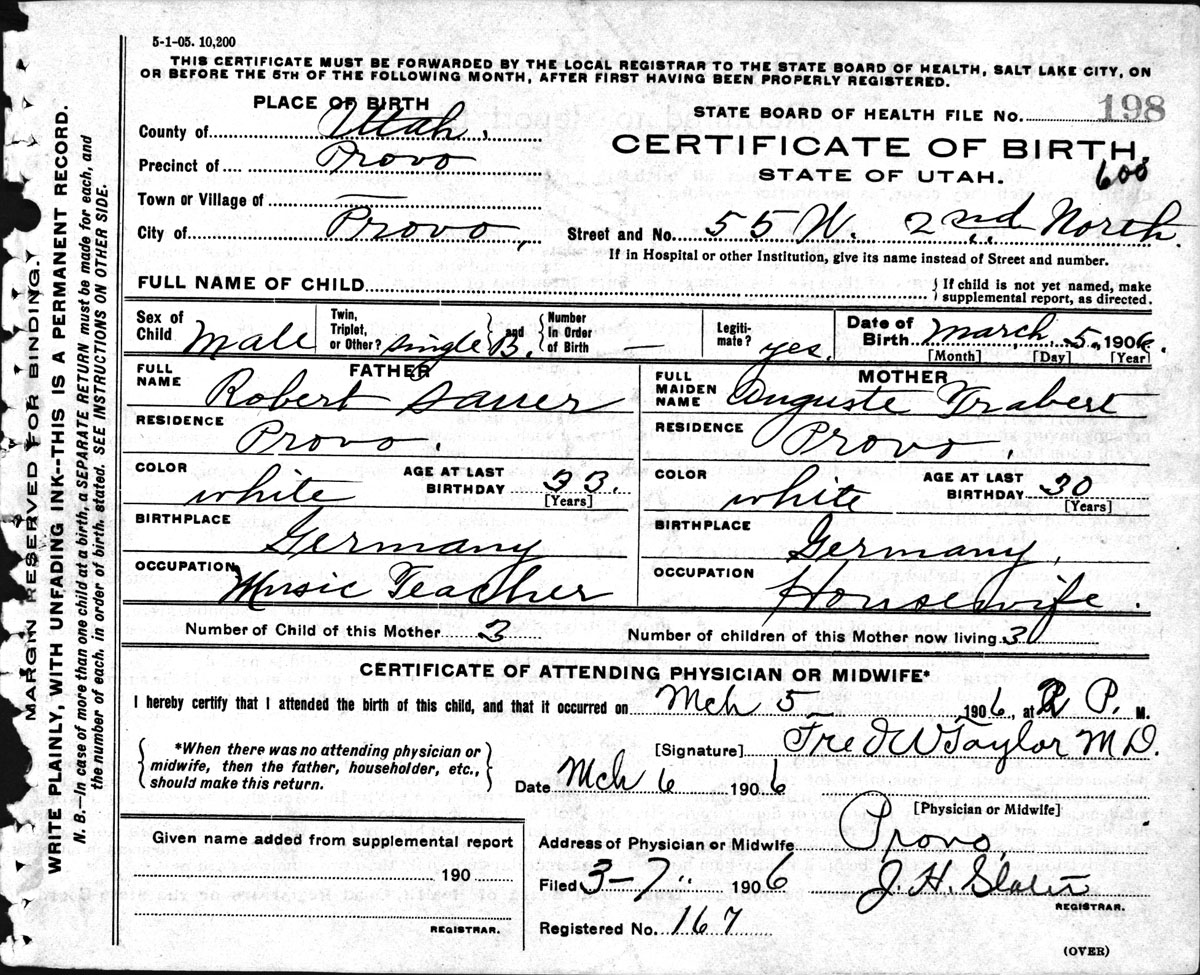 5-1-05. 10,200
THIS CERTIFICATE MUST BE FORWARDED BY THE LOCAL REGISTRAR TO THE STATE BOARD OF HEALTH, SALT LAKE CITY, ON
OR BEFORE THE 5TH OF THE FOLLOWING MONTH, AFTER FIRST HAVING BEEN PROPERLY REGISTERED.
PLACE OF BIRTH
County of Utah.
Precinct of Provo
Town or Village of —
City of Provo,
STATE BOARD OF HEALTH FILE No. 198
CERTIFICATE OF BIRTH
STATE OF UTAH.
600
Street and No. 55 W. 2nd North.
If in Hospital or other Institution, give its name instead of Street and number.
FULL NAME OF CHILD
{ If child is not yet named, make
supplemental report, as directed.
Sex of Child Male
Twin, Triplet, or Other? single B. } and { Number In Order of Birth —
Legiti-mate? yes.
Date of Birth March 5, 1906.
[Month] [Day] [Year]
FATHER
FULL NAME Robert Sauer
RESIDENCE Provo.
COLOR white AGE AT LAST BIRTHDAY 33. [Years]
BIRTHPLACE Germany
OCCUPATION Music Teacher
MOTHER
FULL MAIDEN NAME Auguste Trabert
RESIDENCE Provo.
COLOR white AGE AT LAST BIRTHDAY 30 [Years]
BIRTHPLACE Germany.
OCCUPATION Housewife.
Number of Child of this Mother 3 Number of children of this Mother now living 3
CERTIFICATE OF ATTENDING PHYSICIAN OR MIDWIFE*
I hereby certify that I attended the birth of this child, and that it occurred on Mch 5 1906, at P. M.
{ *When there was no attending physician or
midwife, then the father, householder, etc.,
should make this return. }
[Signature] Fred W Taylor M D.
Date Mch 6 1906
[Physician or Midwife]
Given name added from supplemental report
190
REGISTRAR.
Address of Physician or Midwife Provo,
Filed 3-7" 1906 J. H. Slater
REGISTRAR.
Registered No. 167
(OVER)
MARGIN RESERVED FOR BINDING.
WRITE PLAINLY, WITH UNFADING INK--THIS IS A PERMANENT RECORD.
N. B.—In case of more than one child at a birth, a SEPARATE RETURN must be made for each, and
the number of each, in order of birth, stated. SEE INSTRUCTIONS ON OTHER SIDE.